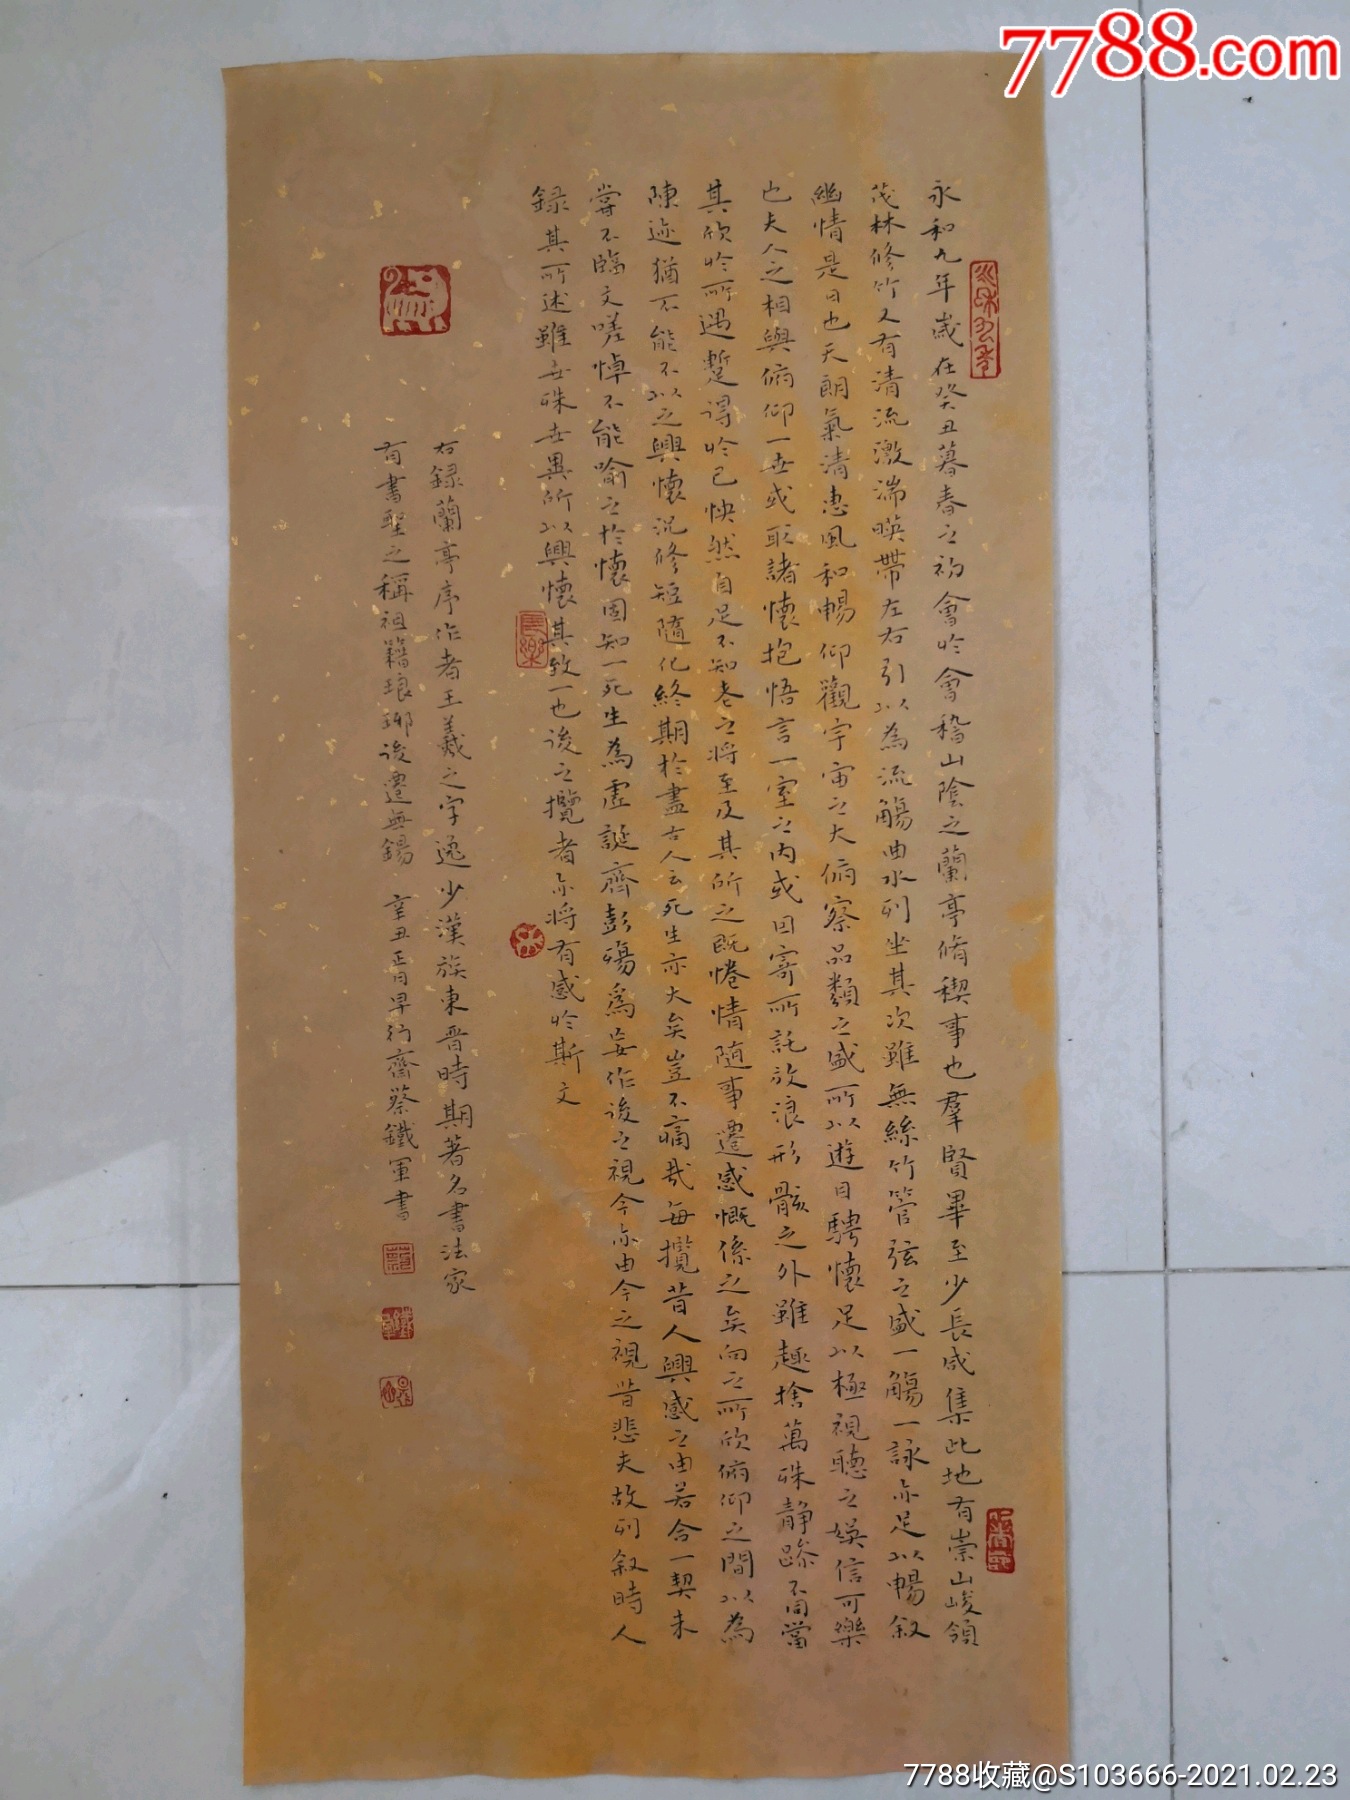 7788.com
永和九年歲在癸丑暮春之初會於會稽山陰之蘭亭脩禊事也羣賢畢至少長咸集此地有崇山峻領
茂林修竹又有清流激湍暎帶左右引以為流觴曲水列坐其次雖無絲竹管弦之盛一觴一詠亦足以暢叙
幽情是日也天朗氣清惠風和暢仰觀宇宙之大俯察品類之盛所以遊目騁懷足以極視聽之娛信可樂
也夫人之相與俯仰一世或取諸懷抱悟言一室之内或因寄所託放浪形骸之外雖趣捨萬殊静躁不同當
其欣於所遇蹔得於己怏然自足不知老之將至及其所之既惓情隨事遷感慨係之矣向之所欣俯仰之間以為
陳迹猶不能不以之興懷況修短隨化終期於盡古人云死生亦大矣豈不痛哉每攬昔人興感之由若合一契未
嘗不臨文嗟悼不能喻之於懷固知一死生為虛誕齊彭殤為妄作後之視今亦由今之視昔悲夫故列叙時人
録其所述雖世殊世異所以興懷其致一也後之攬者亦將有感於斯文
右録蘭亭序作者王羲之字逸少漢族東晋時期著名書法家
有書聖之稱祖籍琅琊後遷無錫 辛丑正月早行齋蔡鐵軍書
7788收藏@S103666-2021.02.23